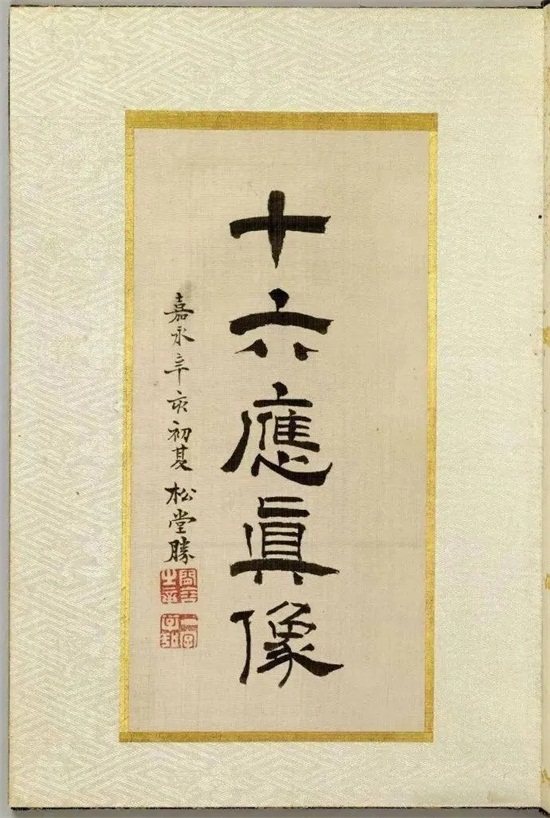 十六應真像
嘉永辛亥初夏 松堂勝